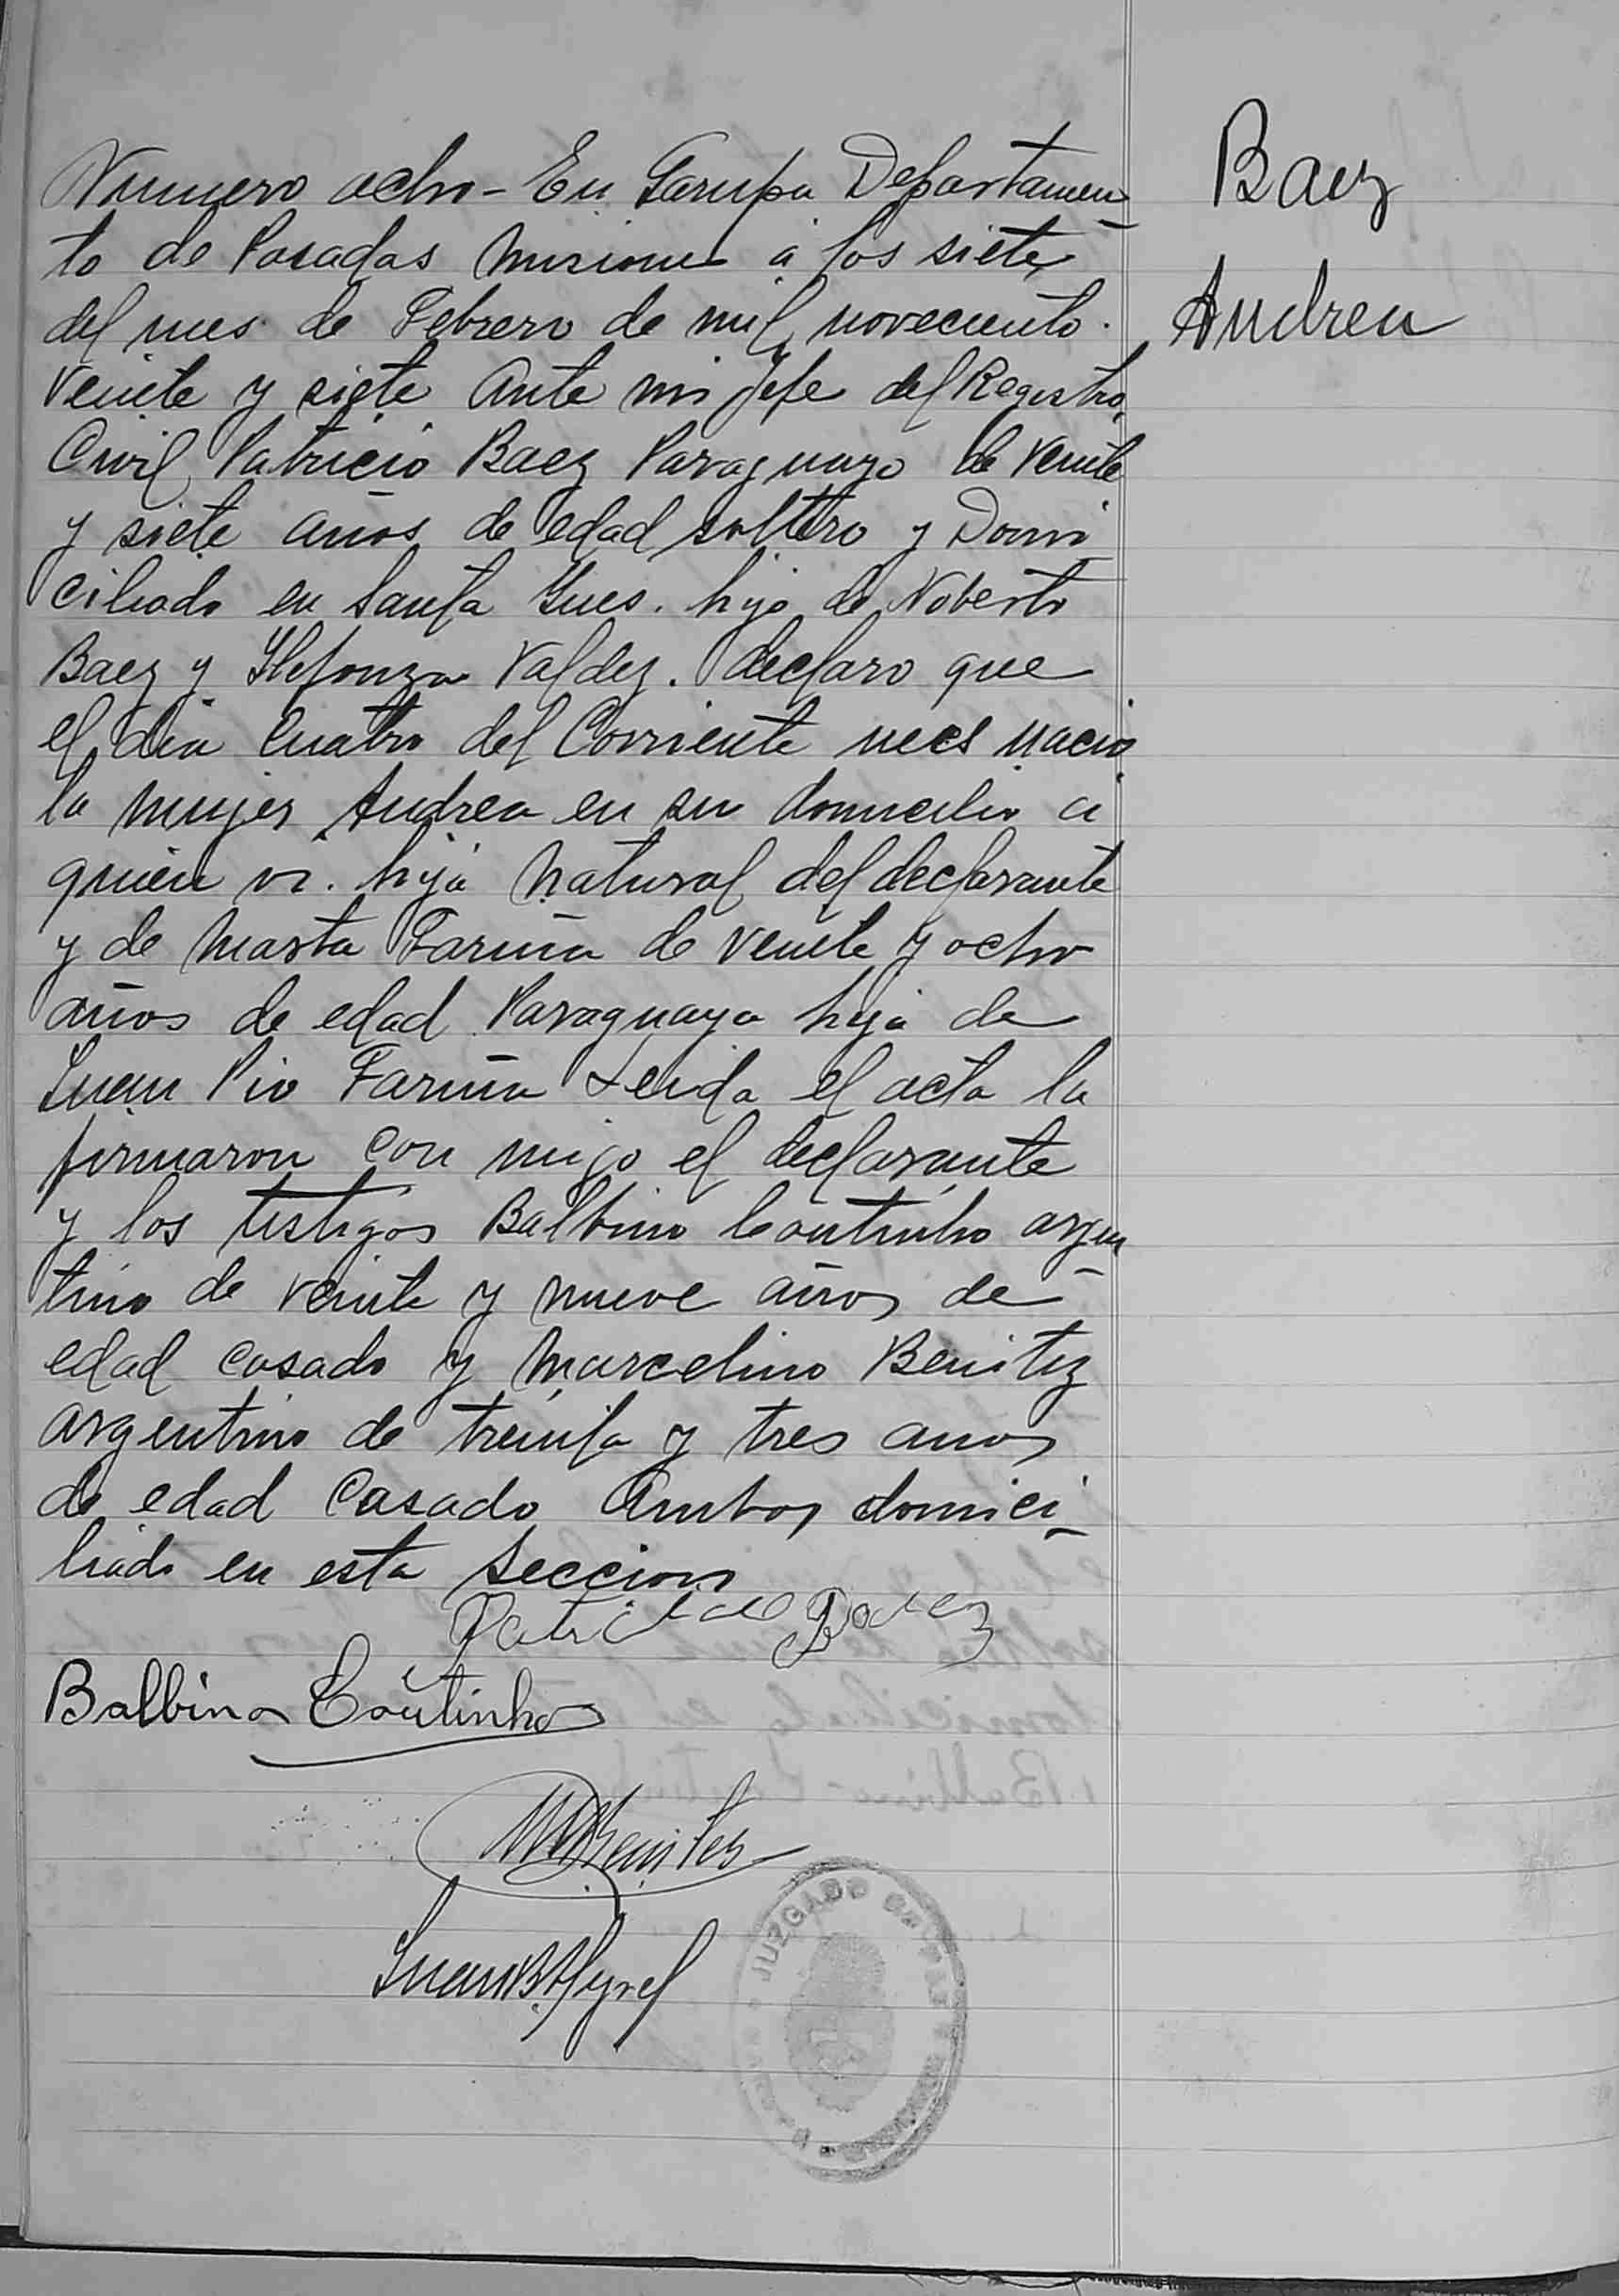 Baez
Andrea
Numero ocho - En Garupa Departamen-
to de Posadas Misiones a los siete
del mes de Febrero de mil novecientos
veinte y siete Ante mi Jefe del Registro
Civil Patricio Baez Paraguayo de veinte
y siete años de edad soltero y Domi-
ciliado en Santa Ynes. hijo de Noberto
Baez y Ildefonza Valdez. declaro que
el dia cuatro del Corriente mes nacio
la mujer Andrea en su domicilio a
quien vi. hija natural del declarante
y de Marta Fariña de veinte y ocho
años de edad Paraguaya hija de
Juan Pio Fariña Leida el acta la
firmaron con migo el declarante
y los testigos Balbino Coutinho argen-
tino de veinte y nueve años de
edad casado y Marcelino Benitez
argentino de treinta y tres anos
de edad Casado Ambos domici-
liado en esta Seccion
Patricio Baez
Balbino Coutinho
M Benitez
Juan B.
JUZGADO DE PAZ